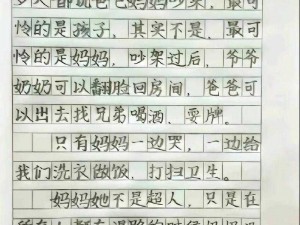 多人都说爸爸妈妈吵架，最可
怜的是孩子，其实不是，最可
怜的是妈妈，吵架过后，爷爷
奶奶可以翻脸回房间，爸爸可
以出去找兄弟喝酒、耍牌。
只有妈妈一边哭，一边给
我们洗衣做饭，打扫卫生。
妈妈她不是超人，只是在